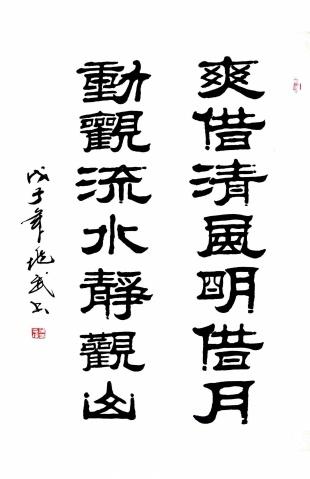 爽借清風明借月
動觀流水靜觀山
戊子年 武書